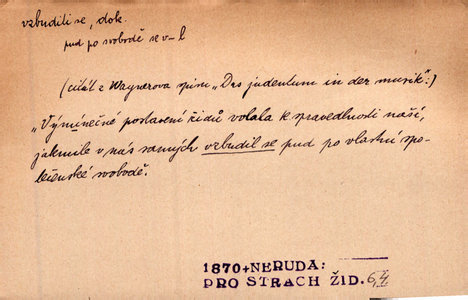 vzbuditi se, dok.
pud po svobodě se v–l
(citát z Wagnerova spisu „Das judentum in der musik“:)
„Výmínečné postavení židů volalo k spravedlnosti naší,
jakmile v nás samých vzbudil se pud po vlastní spo-
lečenské svobodě.
1870+NERUDA:
PRO STRACH ŽID. 6,